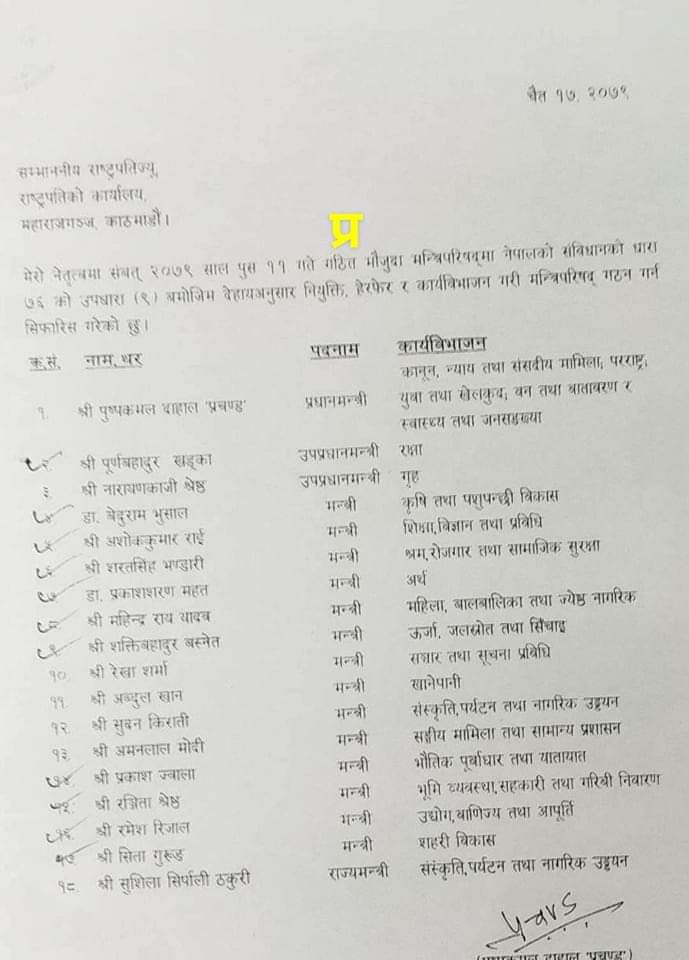 चैत १७, २०७९
सम्माननीय राष्ट्रपतिज्यू,
राष्ट्रपतिको कार्यालय,
महाराजगञ्ज, काठमाडौं।
प्र
मेरो नेतृत्वमा संबत् २०७९ साल पुस ११ गते गठित मौजुदा मन्त्रिपरिषद्‌मा नेपालको संविधानको धारा
७६ को उपधारा (९) बमोजिम देहायअनुसार नियुक्ति, हेरफेर र कार्यविभाजन गरी मन्त्रिपरिषद् गठन गर्न
सिफारिस गरेको छु।
क्र.सं. नाम, थर पदनाम कार्यविभाजन
कानून, न्याय तथा संसदीय मामिला; परराष्ट्र;
१. श्री पुष्पकमल दाहाल 'प्रचण्ड' प्रधानमन्त्री युवा तथा खेलकुद; वन तथा वातावरण र
स्वास्थ्य तथा जनसङख्या
२. श्री पूर्णबहादुर खड्का उपप्रधानमन्त्री रक्षा
३. श्री नारायणकाजी श्रेष्ठ उपप्रधानमन्त्री गृह
४. डा. बेदुराम भुसाल मन्त्री कृषि तथा पशुपन्छी विकास
५. श्री अशोककुमार राई मन्त्री शिक्षा,विज्ञान तथा प्रविधि
६. श्री शरतसिंह भण्डारी मन्त्री श्रम,रोजगार तथा सामाजिक सुरक्षा
७. डा. प्रकाशशरण महत मन्त्री अर्थ
८. श्री महिन्द्र राय यादव मन्त्री महिला, बालबालिका तथा ज्येष्ठ नागरिक
९. श्री शक्तिबहादुर बस्नेत मन्त्री ऊर्जा, जलस्रोत तथा सिँचाइ
१०. श्री रेखा शर्मा मन्त्री सञ्चार तथा सूचना प्रविधि
११. श्री अब्दुल खान मन्त्री खानेपानी
१२. श्री सुदन किराती मन्त्री संस्कृति,पर्यटन तथा नागरिक उड्डयन
१३. श्री अमनलाल मोदी मन्त्री सङ्घीय मामिला तथा सामान्य प्रशासन
१४. श्री प्रकाश ज्वाला मन्त्री भौतिक पूर्वाधार तथा यातायात
१५. श्री रञ्जिता श्रेष्ठ मन्त्री भूमि व्यवस्था,सहकारी तथा गरिबी निवारण
१६. श्री रमेश रिजाल मन्त्री उद्योग,वाणिज्य तथा आपूर्ति
१७ श्री सिता गुरुङ मन्त्री शहरी विकास
१८. श्री सुशिला सिर्पाली ठकुरी राज्यमन्त्री संस्कृति,पर्यटन तथा नागरिक उड्डयन
(पुष्पकमल दाहाल 'प्रचण्ड')